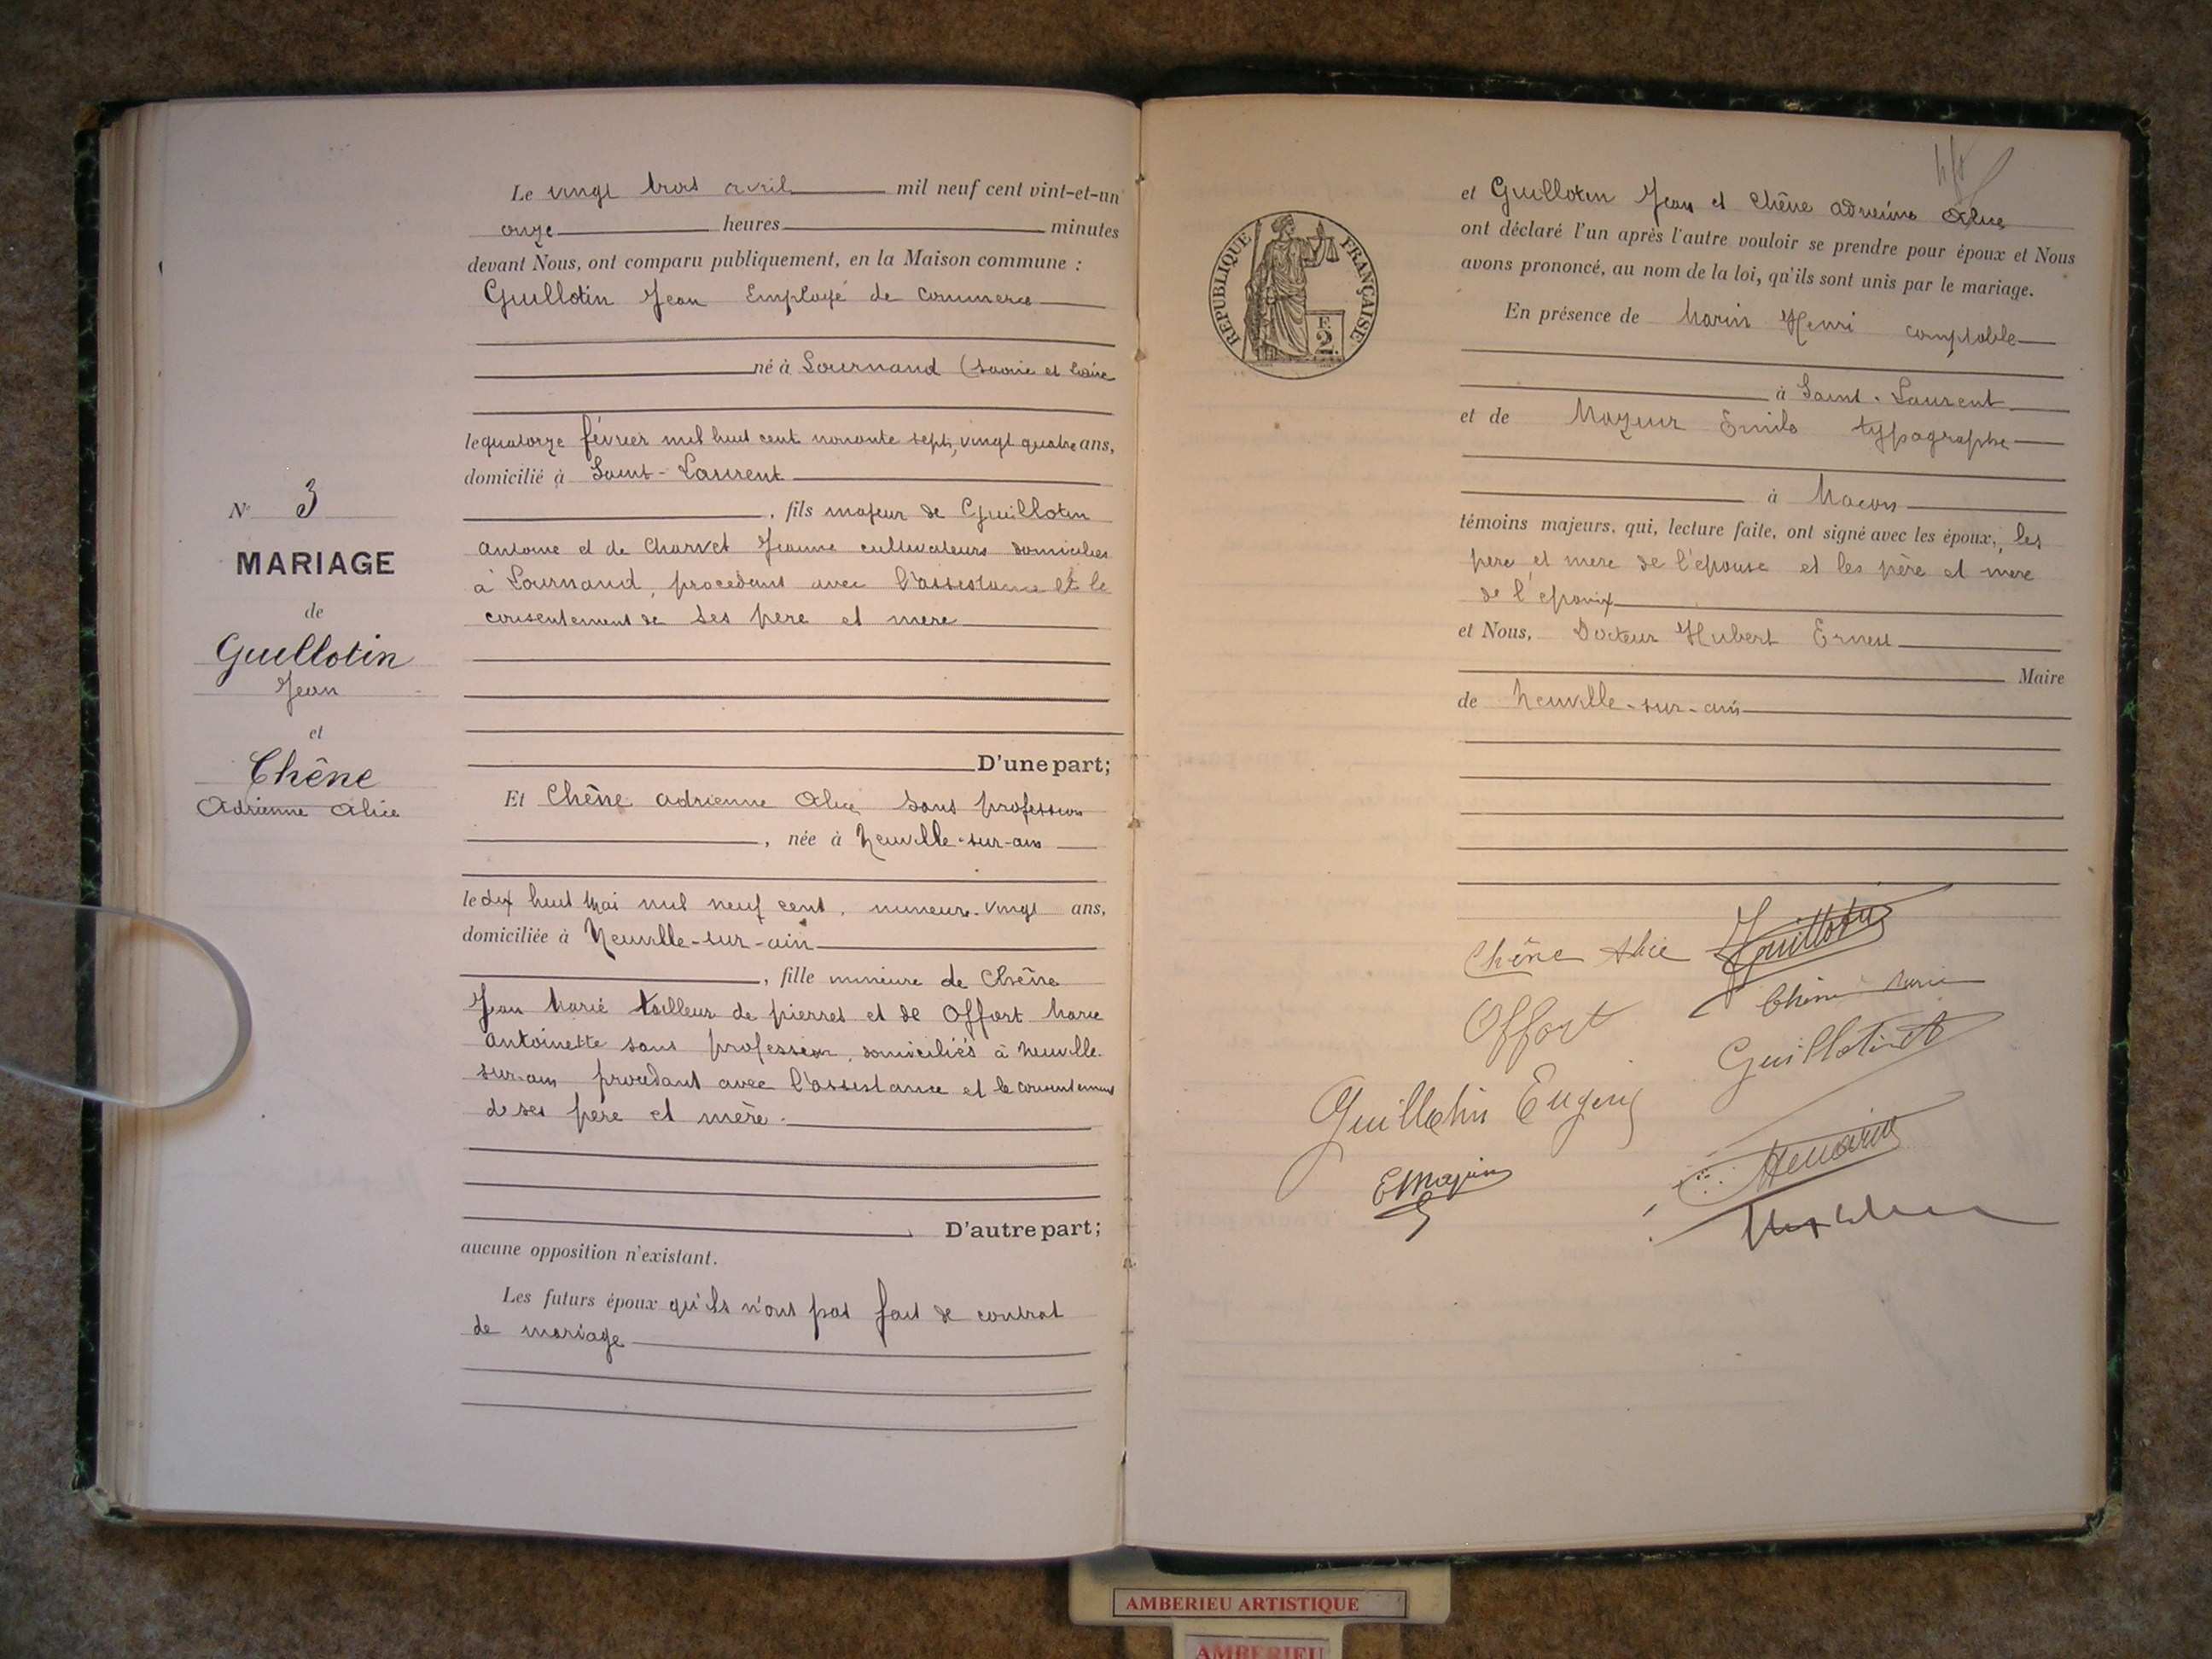 Le vingt trois avril mil neuf cent vint-et-un
onze heures minutes
devant Nous, ont comparu publiquement, en la Maison commune :
Guillotin Jean Employé de commerce
né à Lournand (Saône et Loire
le quatorze février mil huit cent nonante sept, vingt quatre ans,
domicilié à Saint-Laurent
, fils majeur de Guillotin
Antoine et de Charvet Jeanne cultivateurs domiciliés
à Lournand, procedant avec l'assistance et le
consentement de ses pere et mere
D'une part;
Et Chêne adrienne Alice sans profession
, née à Neuville-sur-ain
le dix huit Mai mil neuf cent, mineure. vingt ans,
domiciliée à Neuville-sur-ain
, fille mineure de Chêne
Jean Marie tailleur de pierres et de Offort Marie
Antoinette sans profession, domiciliés à Neuville-
sur-ain procedant avec l'assistance et le consentement
de ses pere et mère.
D'autre part;
aucune opposition n'existant.
Les futurs époux qu'ils n'ont pas fait de contrat
de mariage
N° 3
MARIAGE
de
Guillotin
Jean
et
Chêne
Adrienne Alice
et Guillotin Jean et Chêne adrienne Alice
ont déclaré l'un après l'autre vouloir se prendre pour époux et Nous
avons prononcé, au nom de la loi, qu'ils sont unis par le mariage.
En présence de Marin Henri comptable
à Saint-Laurent
et de Mazeur Emile typographe
à Macon
témoins majeurs, qui, lecture faite, ont signé avec les époux, les
pere et mere de l'epouse et les père et mere
de l'epoux
et Nous, Docteur Hubert Ernest
Maire
de Neuville-sur-ain
RÉPUBLIQUE FRANÇAISE
F.
2
Chêne Alice Guillotin
Offort Chêne Marie
Guillotin
Guillotin Eugene
AMBERIEU ARTISTIQUE
AMBERIEU